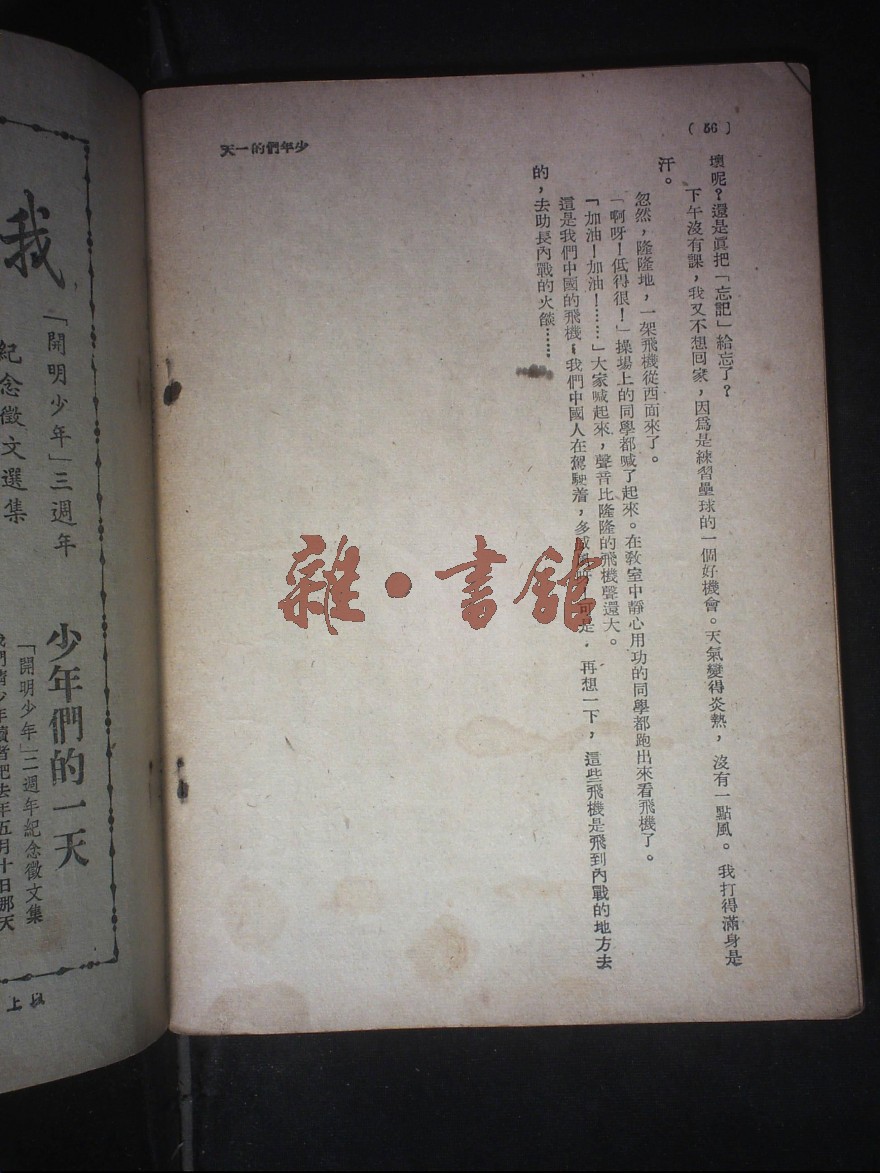 ( 56 )
少年們的一天
壞呢？還是眞把「忘記」給忘了？
下午沒有課，我又不想回家，因爲是練習壘球的一個好機會。天氣變得炎熱，沒有一點風。我打得滿身是
汗。
忽然，隆隆地，一架飛機從西面來了。
「啊呀！低得很！」操場上的同學都喊了起來。在教室中靜心用功的同學都跑出來看飛機了。
「加油！加油！……」大家喊起來，聲音比隆隆的飛機聲還大。
這是我們中國的飛機，我們中國人在駕駛着，多威，再想一下，這些飛機是飛到內戰的地方去
的，去助長內戰的火燄……
雜·書館
少年們的一天
「開明少年」二週年紀念徵文集
年五月十日那天
我
「開明少年」三週年
紀念徵文選集